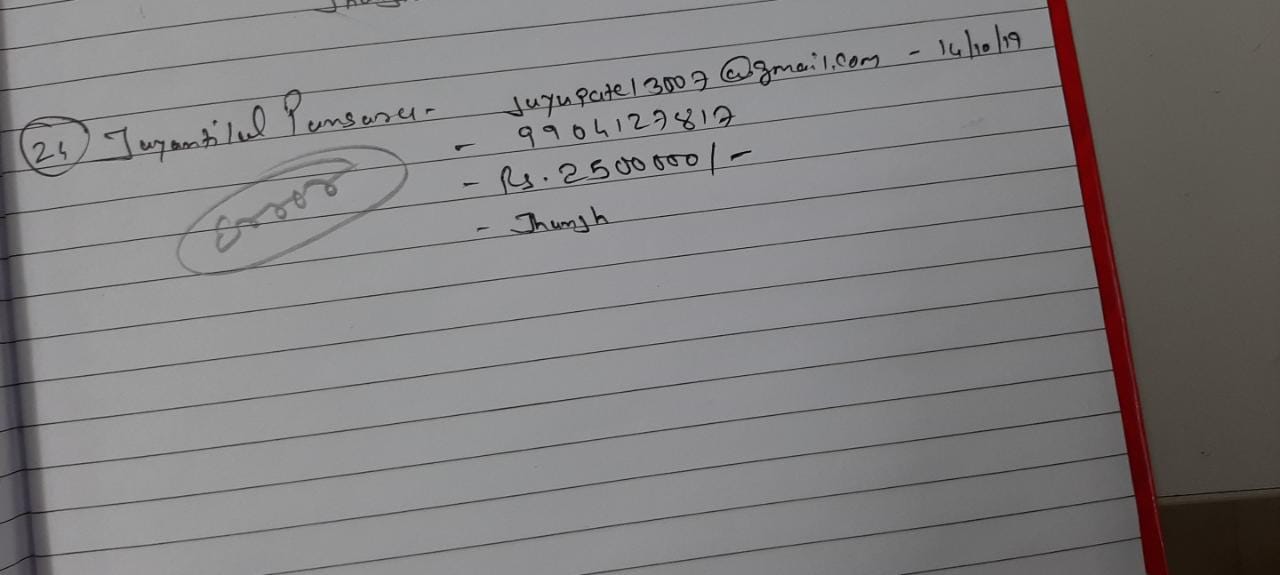 24 Jayantilal Pansara - jayupatel3007@gmail.com - 14/10/19
- 9904127817
- Rs. 2500000/-
- Thumsh